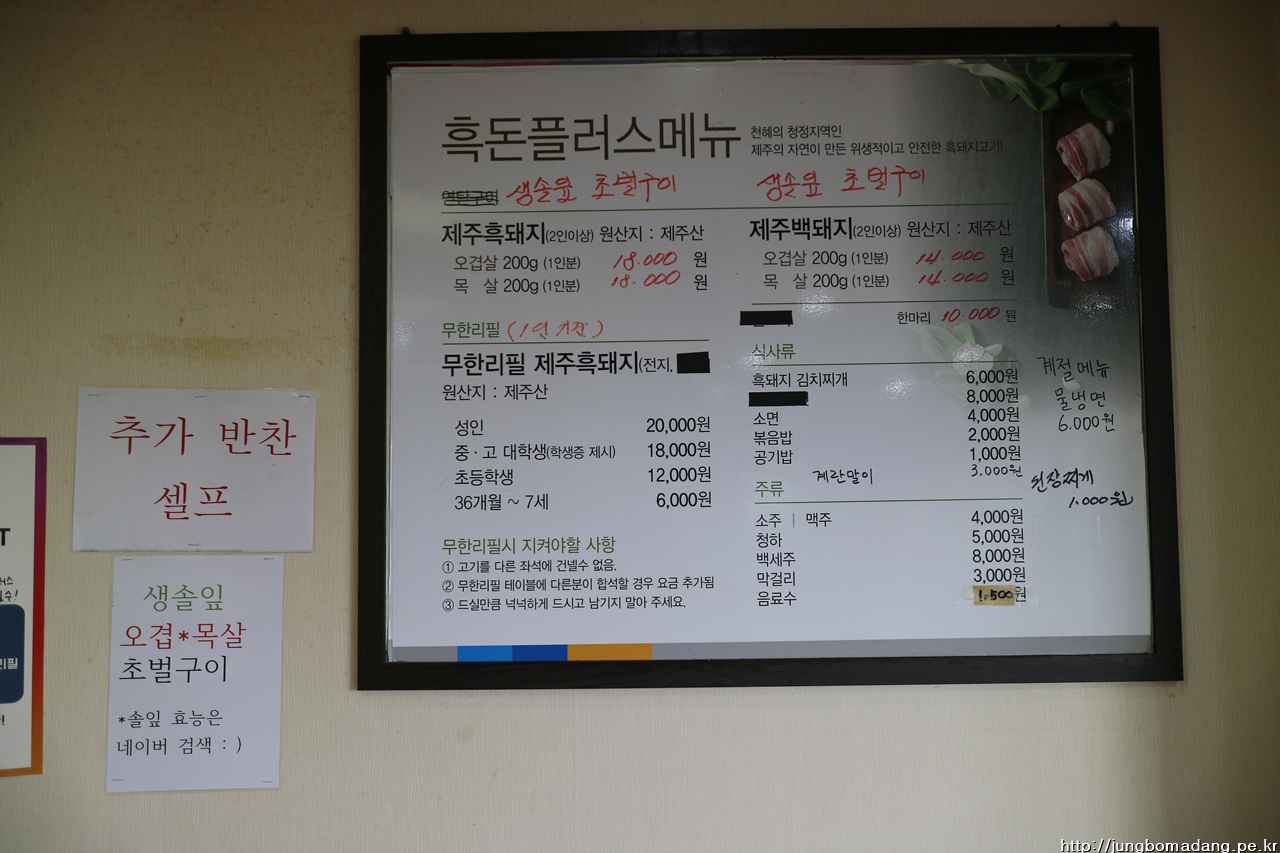 흑돈플러스메뉴
천혜의 청정지역인
제주의 자연이 만든 위생적이고 안전한 흑돼지고기!
연탄구이 생솔잎 초벌구이
제주흑돼지(2인이상) 원산지 : 제주산
오겹살 200g (1인분) 18.000 원
목 살 200g (1인분) 18.000 원
무한리필 (1인 기준)
무한리필 제주흑돼지(전지,
원산지 : 제주산
성인 20,000원
중·고 대학생(학생증 제시) 18,000원
초등학생 12,000원
36개월 ~ 7세 6,000원
무한리필시 지켜야할 사항
① 고기를 다른 좌석에 건넬수 없음.
② 무한리필 테이블에 다른분이 합석할 경우 요금 추가됨
③ 드실만큼 넉넉하게 드시고 남기지 말아 주세요.
생솔잎 초벌구이
제주백돼지(2인이상) 원산지 : 제주산
오겹살 200g (1인분) 14.000 원
목 살 200g (1인분) 14.000 원
한마리 10.000 원
식사류
흑돼지 김치찌개 6,000원
8,000원
소면 4,000원
볶음밥 2,000원
공기밥 1,000원
계란말이 3.000원
주류
소주 | 맥주 4,000원
청하 5,000원
백세주 8,000원
막걸리 3,000원
음료수 1.500원
계절메뉴
물냉면
6.000원
된장찌개
1.000원
추가 반찬
셀프
생솔잎
오겹*목살
초벌구이
*솔잎 효능은
네이버 검색 : )
T
리필
http://jungbomadang.pe.kr